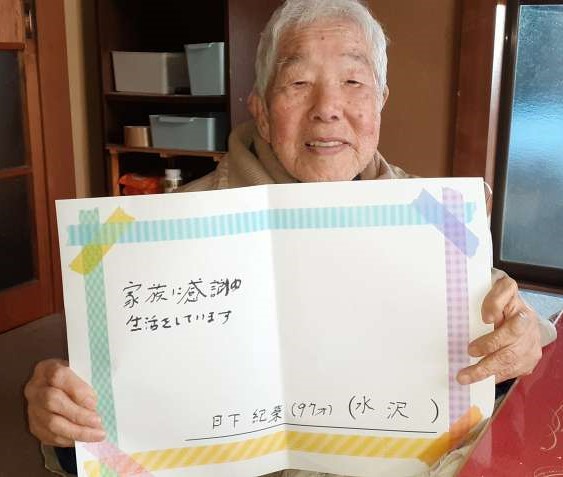 家族に感謝の
生活をしています
日下 紀榮 (97才) (水沢)